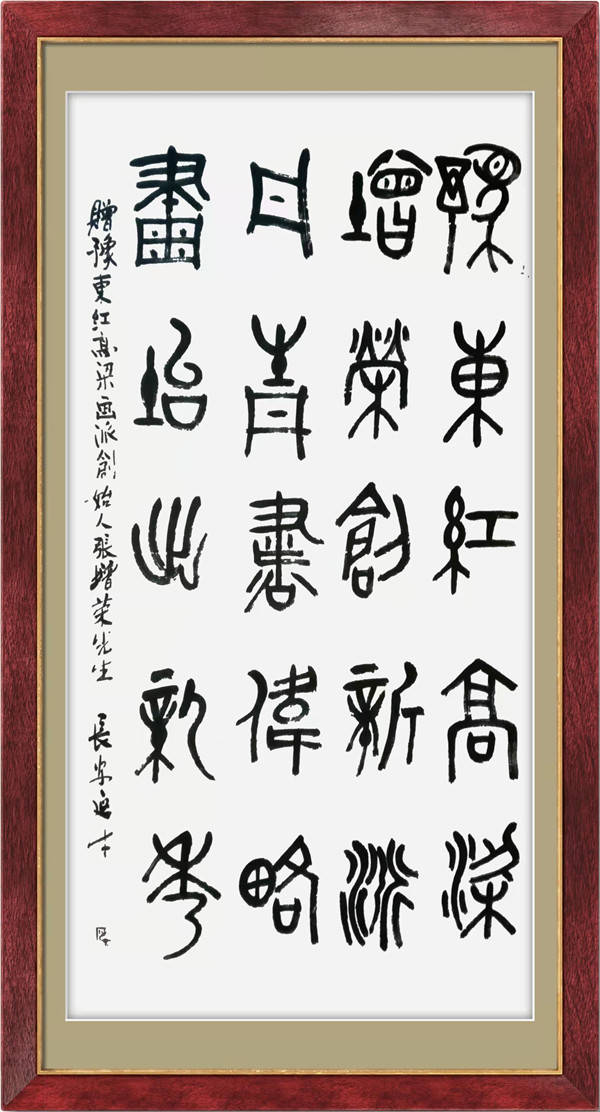 豫東紅高粱
增榮創新派
丹青書偉略
畫出新秀
贈豫東紅高粱画派創始人張增荣先生 長安